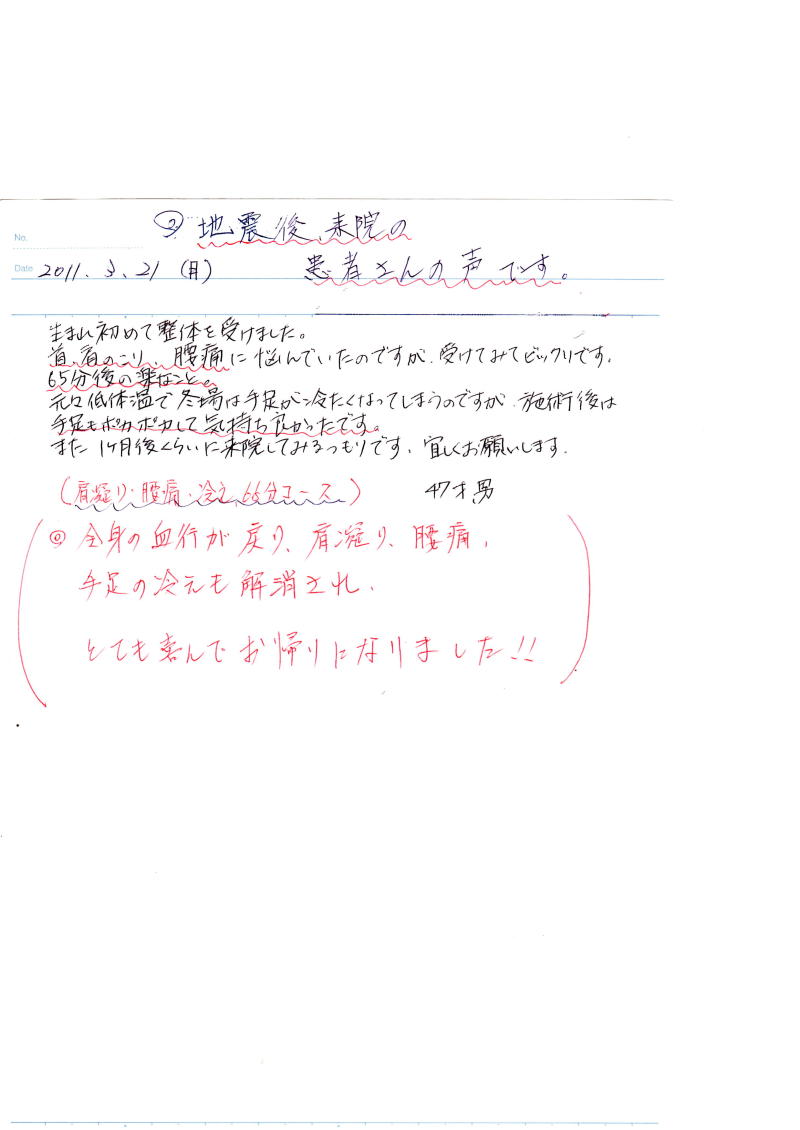 No.
② 地震後、来院の
Date 2011. 3. 21 (月)
患者さんの声です。
生まれ初めて整体を受けました。
首、肩のこり、腰痛に悩んでいたのですが、受けてみてビックリです。
65分後の楽なこと。
元々低体温で冬場は手足が冷たくなってしまうのですが、施術後は
手足もポカポカして気持ち良かったです。
また1ヶ月後くらいに来院してみるつもりです。宜しくお願いします。
(肩凝り・腰痛・冷え、65分コース) 47才、男
◎ 全身の血行が戻り、肩凝り、腰痛、
手足の冷えも解消され、
とても喜んでお帰りになりました!!